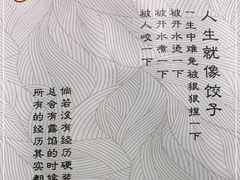 人生就像饺子
一生中难免被狠狠捏一下
被开水烫一下
被开水煮一下
被人咬一下
倘若没有经历硬装
总会有露馅的时候
所有的经历其实都